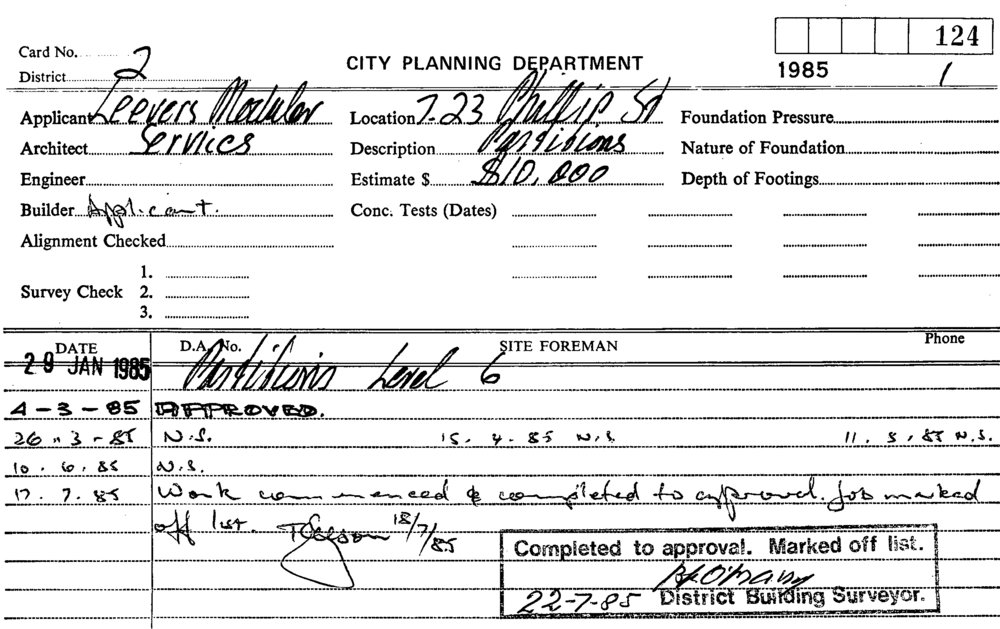 124
Card No. 2
CITY PLANNING DEPARTMENT
1985 1
District
Applicant Leevers Modular Location 7-23 Phillip St Foundation Pressure
Architect Services Description Partitions Nature of Foundation
Engineer Estimate $ $10,000 Depth of Footings
Builder Applicant. Conc. Tests (Dates)
Alignment Checked
1.
Survey Check 2.
3.
DATE D.A. No. SITE FOREMAN Phone
29 JAN 1985 Partitions Level 6
4-3-85 APPROVED.
26-3-85 N.S. 15.4.85 N.S. 11.5.85 N.S.
10.6.85 N.S.
17.7.85 Work commenced & completed to approval. Job marked
off list. 18/7/85
Completed to approval. Marked off list.
22-7-85 District Building Surveyor.